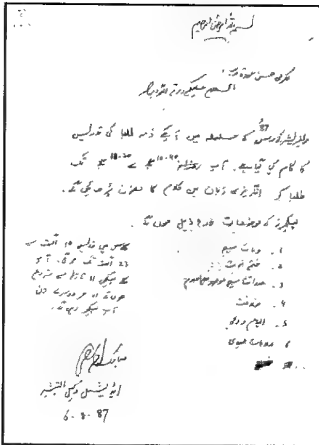 بسم اللہ الرحمن الرحیم
مکرمی حسن عودہ صاحب
السلام علیکم ورحمۃ اللہ وبرکاتہ
87 کے سلسلہ میں آپکے ذمہ طلبا کی تدریس
کا کام کیا گیا ہے۔ آپ روزانہ سے تک
طلبا کو انگریزی زبان میں کلام کا مضمون پڑھائیں گے۔
لیکچرز کے موضوعات مندرجہ ذیل ہوں گے
1. وفات مسیح
2. ختم نبوت
3. صداقت مسیح موعود علیہ السلام
4. خلافت
5. الہام و وحی
6
کلاس میں تدریس 10 اگست سے
23 اگست تک ہوگی۔ آپ
کے لیکچر 11 تاریخ سے شروع
ہوں گے اور ہر دوسرے دن
آپ لیکچر دیں گے۔
ایڈیشنل وکیل التبشیر
6-8-87